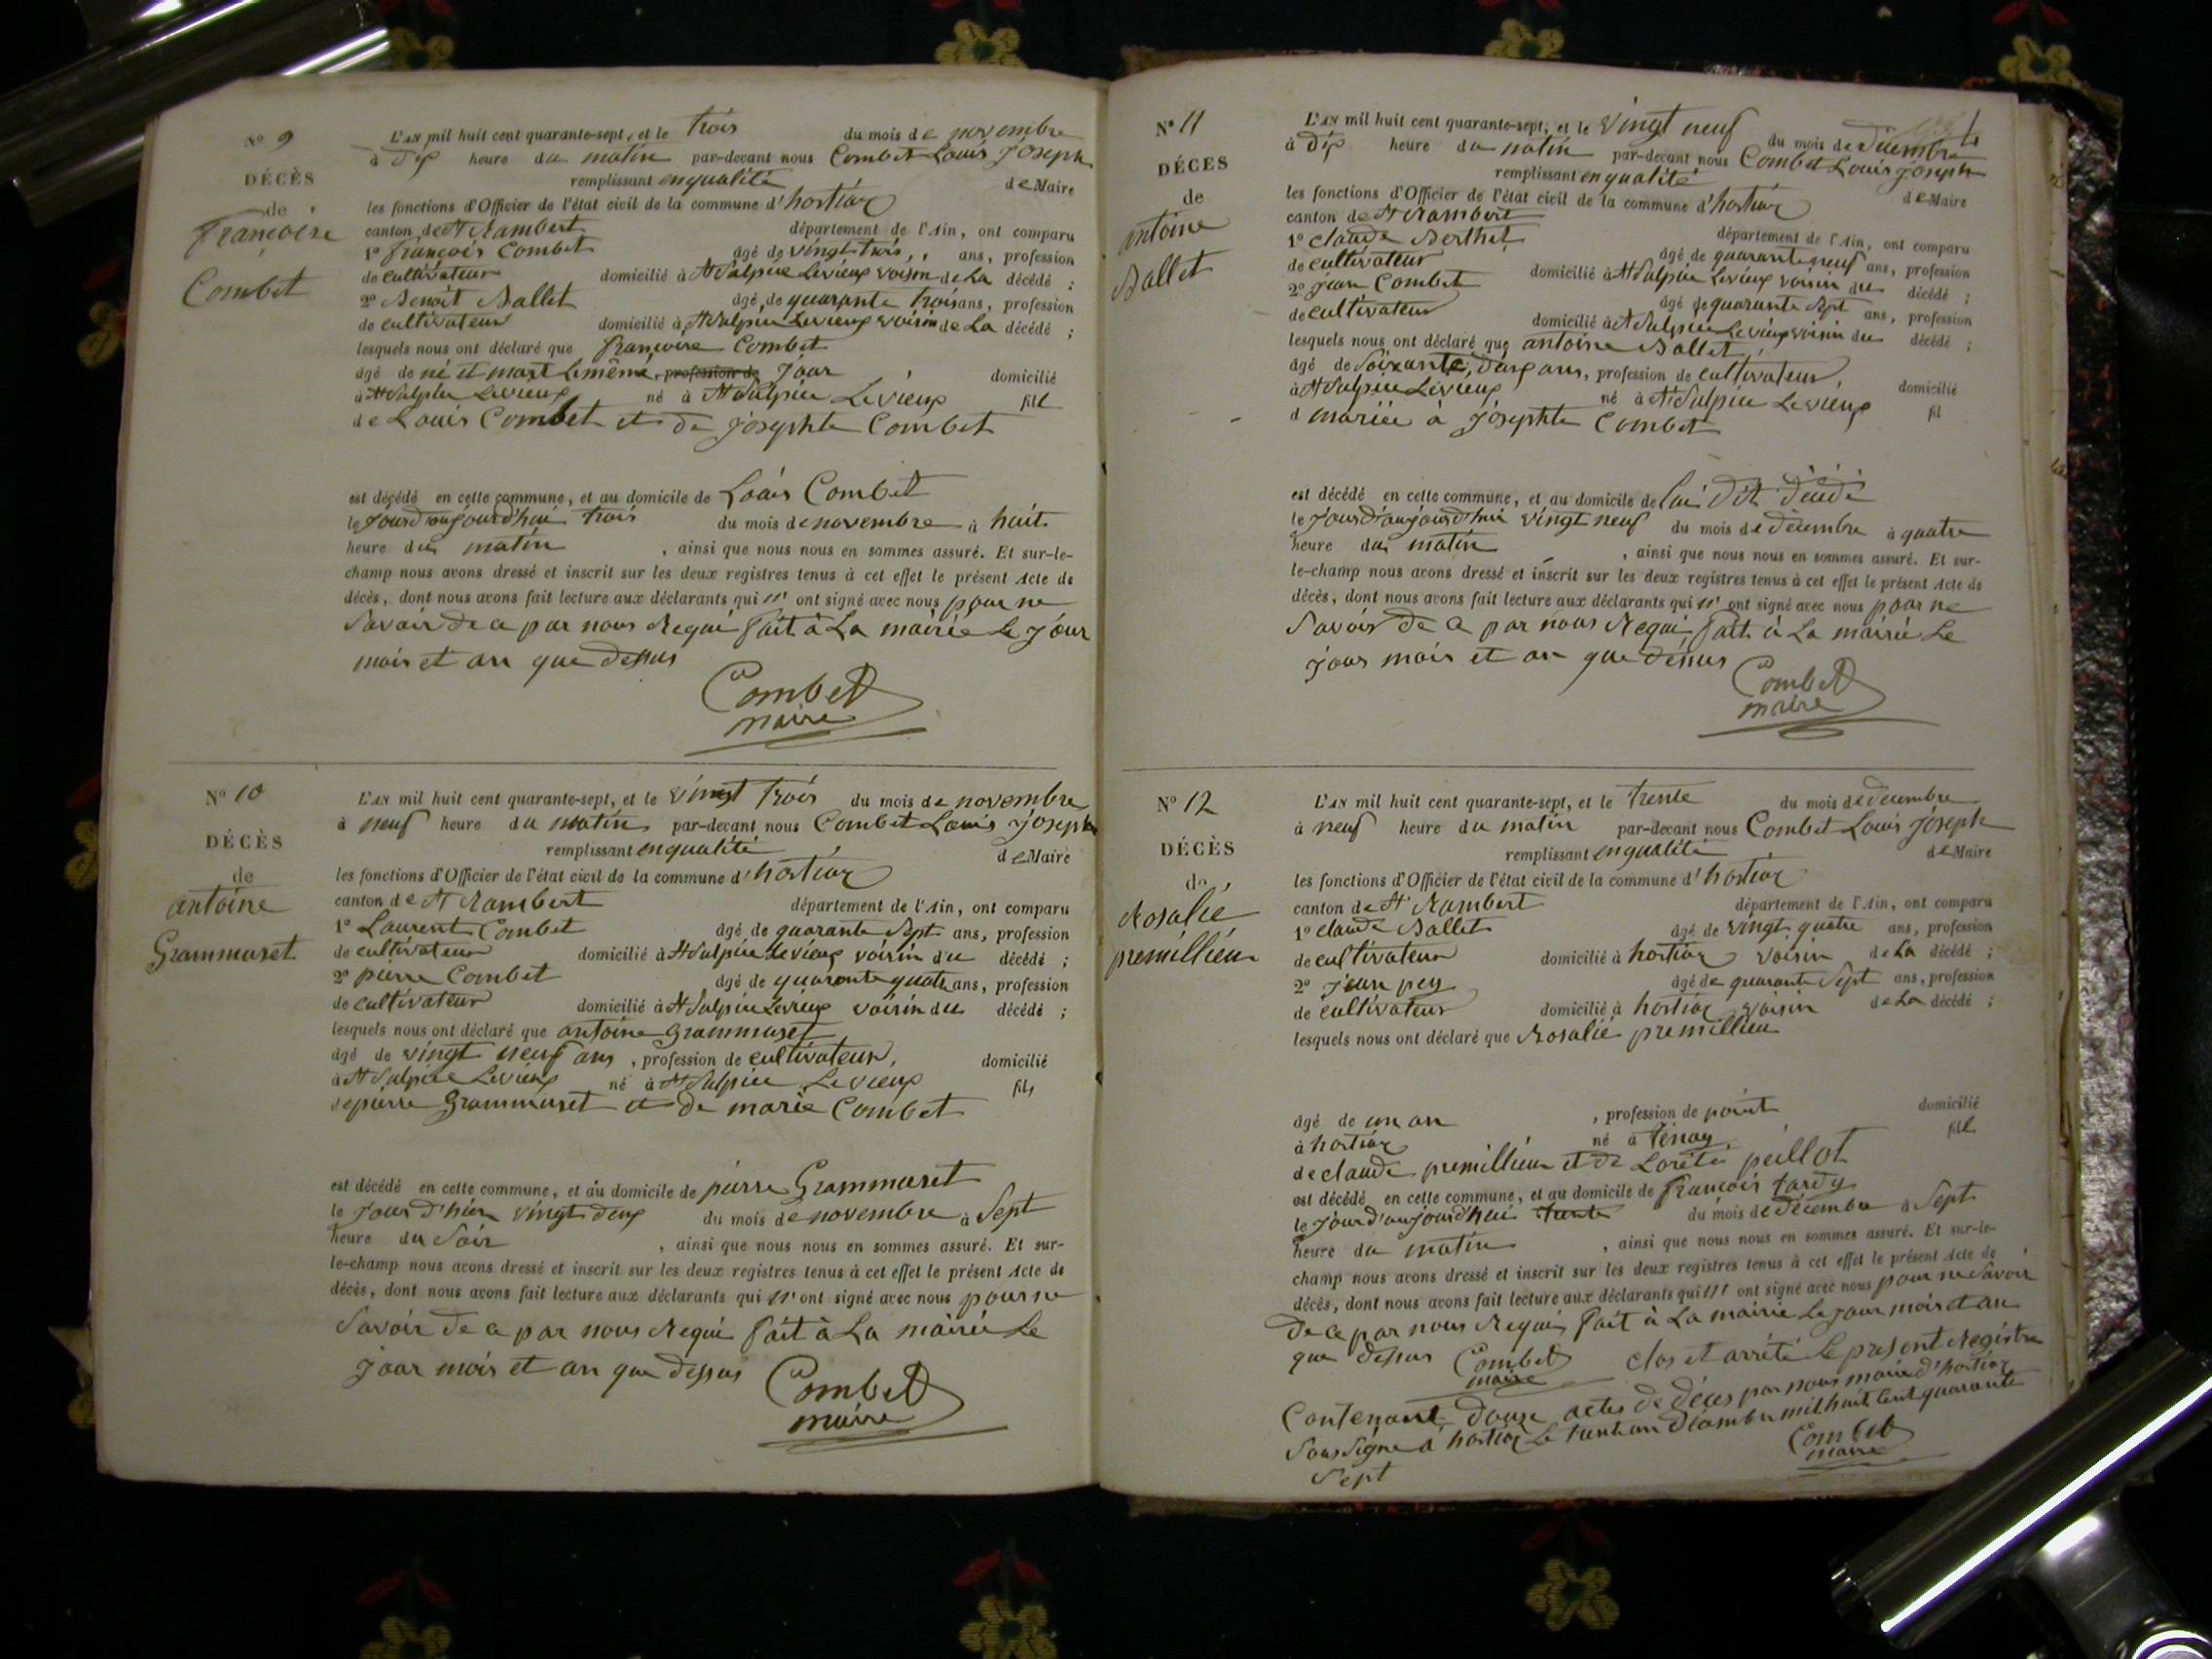 N° 9
DÉCÈS
de
Françoise
Combet
L'AN mil huit cent quarante-sept, et le trois du mois de novembre
à dix heure du matin par-devant nous Combet Louis joseph
remplissant en qualité de Maire
les fonctions d'Officier de l'état civil de la commune d'hostiaz
canton de St Rambert département de l'Ain, ont comparu
1° françois Combet âgé de vingt trois, ans, profession
de cultivateur domicilié à St Sulpice Levieux voisin de La décédé ;
2° Benoit Ballet âgé de quarante trois ans, profession
de cultivateur domicilié à St Sulpice Levieux voisin de La décédé ;
lesquels nous ont déclaré que françoise Combet
âgé de né et mort le même, profession de jour domicilié
à St Sulpice Levieux né à St Sulpice Levieux fill
de Louis Combet et de josephte Combet
est décédé en cette commune, et au domicile de Louis Combet
le jour d'aujourd'hui trois du mois de novembre à huit
heure du matin , ainsi que nous nous en sommes assuré. Et sur-le-
champ nous avons dressé et inscrit sur les deux registres tenus à cet effet le présent Acte de
décès, dont nous avons fait lecture aux déclarants qui n' ont signé avec nous pour ne
Savoir de ce par nous Requi fait à La mairie Le jour
mois et an que dessus
Combet
maire
N° 10
DÉCÈS
de
antoine
Grammaret
L'AN mil huit cent quarante-sept, et le vingt trois du mois de novembre
à neuf heure du matin par-devant nous Combet Louis joseph
remplissant en qualité de Maire
les fonctions d'Officier de l'état civil de la commune d'hostiaz
canton de St Rambert département de l'Ain, ont comparu
1° Laurent Combet âgé de quarante Sept ans, profession
de cultivateur domicilié à St Sulpice Levieux voisin du décédé ;
2° pierre Combet âgé de quarante quatre ans, profession
de cultivateur domicilié à St Sulpice Levieux voisin du décédé ;
lesquels nous ont déclaré que antoine Grammaret
âgé de vingt neuf ans , profession de cultivateur, domicilié
à St Sulpice Levieux né à St Sulpice Levieux fils
de pierre Grammaret et de marie Combet
est décédé en cette commune, et au domicile de pierre Grammaret
le jour d'hier vingt deux du mois de novembre à Sept
heure du Soir , ainsi que nous nous en sommes assuré. Et sur-
le-champ nous avons dressé et inscrit sur les deux registres tenus à cet effet le présent Acte de
décès, dont nous avons fait lecture aux déclarants qui n' ont signé avec nous pour ne
Savoir de ce par nous Requi fait à La mairie Le
jour mois et an que dessus
Combet
maire
N° 11
DÉCÈS
de
antoine
Ballet
L'AN mil huit cent quarante-sept, et le vingt neuf du mois de décembre
à dix heure du matin par-devant nous Combet Louis joseph
remplissant en qualité de Maire
les fonctions d'Officier de l'état civil de la commune d'hostiaz
canton de St Rambert département de l'Ain, ont comparu
1° claude Berthet âgé de quarante neuf ans, profession
de cultivateur domicilié à St Sulpice Levieux voisin du décédé ;
2° jean Combet âgé de quarante Sept ans, profession
de cultivateur domicilié à St Sulpice Levieux voisin du décédé ;
lesquels nous ont déclaré que antoine Ballet
âgé de Soixante, deux ans, profession de cultivateur, domicilié
à St Sulpice Levieux né à St Sulpice Levieux fil
d mariée à josephte Combet
est décédé en cette commune, et au domicile de lui dit décédé
le jour d'aujourd'hui vingt neuf du mois de décembre à quatre
heure du matin , ainsi que nous nous en sommes assuré. Et sur-
le-champ nous avons dressé et inscrit sur les deux registres tenus à cet effet le présent Acte de
décès, dont nous avons fait lecture aux déclarants qui n' ont signé avec nous pour ne
Savoir de ce par nous Requi, fait à La mairie Le
jour mois et an que dessus
Combet
maire
N° 12
DÉCÈS
de
Rosalie
premillieu
L'AN mil huit cent quarante-sept, et le trente du mois de decembre
à neuf heure du matin par-devant nous Combet Louis joseph
remplissant en qualité de Maire
les fonctions d'Officier de l'état civil de la commune d'hostiaz
canton de St Rambert département de l'Ain, ont comparu
1° claude Ballet âgé de vingt quatre ans, profession
de cultivateur domicilié à hostiaz voisin de La décédé ;
2° jean pey âgé de quarante Sept ans, profession
de cultivateur domicilié à hostiaz voisin de La décédé ;
lesquels nous ont déclaré que Rosalie premillieu
âgé de un an , profession de point domicilié
à hostiaz né à Tenay fill
de claude premillieu et de Lorete peillot
est décédé en cette commune, et au domicile de françois tardy
le jour d'aujourd'hui trente du mois de décembre à Sept
heure du matin , ainsi que nous nous en sommes assuré. Et sur-le-
champ nous avons dressé et inscrit sur les deux registres tenus à cet effet le présent Acte de
décès, dont nous avons fait lecture aux déclarants qui n' ont signé avec nous pour ne Savoir
de ce par nous Requis, fait à La mairie Le jour mois et an
que dessus Combet
maire
clos et arrêté le present Registre
Contenant douze actes de décès par nous maire d'hostiaz
Sous Signé à hostiaz Le trente un décembre mil huit cent quarante
Sept
Combet
maire